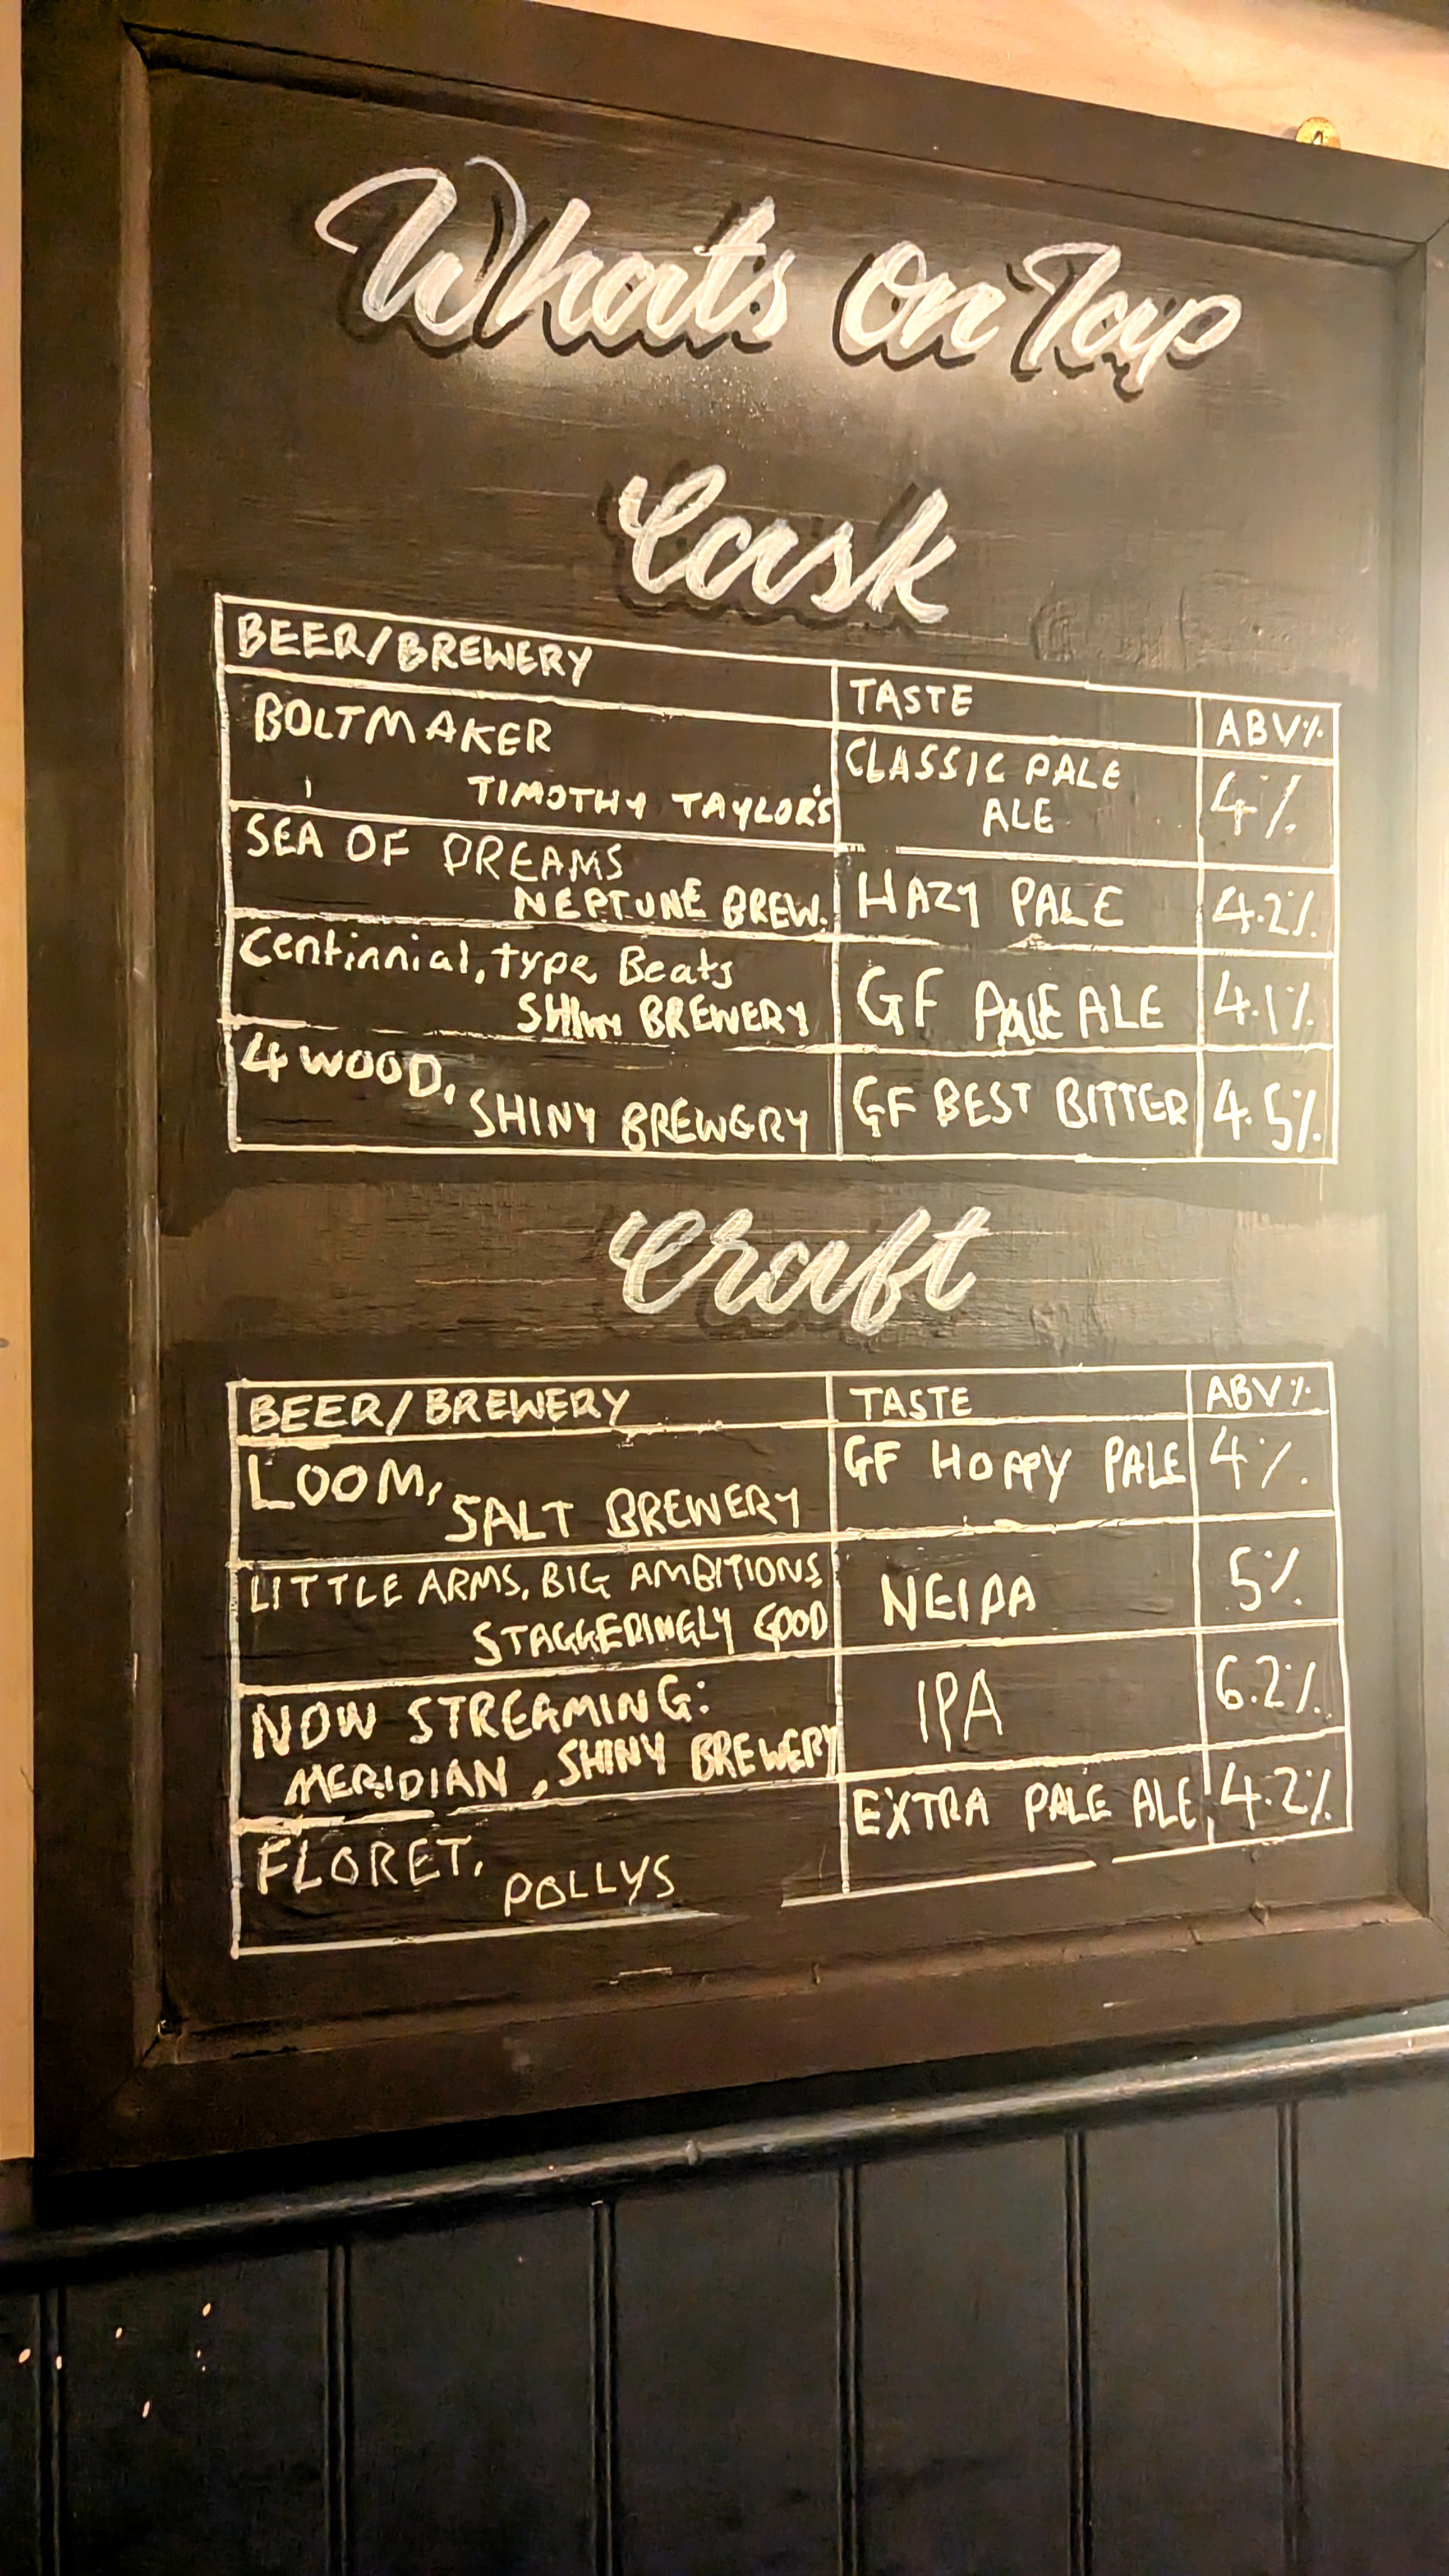 Whats On Tap
Cask
BEER/BREWERY TASTE ABV%
BOLTMAKER CLASSIC PALE
TIMOTHY TAYLOR'S ALE 4%
SEA OF DREAMS
NEPTUNE BREW. HAZY PALE 4.2%
Centinnial, type Beats
SHINY BREWERY GF PALE ALE 4.1%
4 WOOD,
SHINY BREWERY GF BEST BITTER 4.5%
Craft
BEER/BREWERY TASTE ABV%
LOOM, GF HOPPY PALE 4%
SALT BREWERY
LITTLE ARMS, BIG AMBITIONS
STAGGERINGLY GOOD NEIPA 5%
NOW STREAMING:
MERIDIAN, SHINY BREWERY IPA 6.2%
FLORET, EXTRA PALE ALE 4.2%
POLLYS